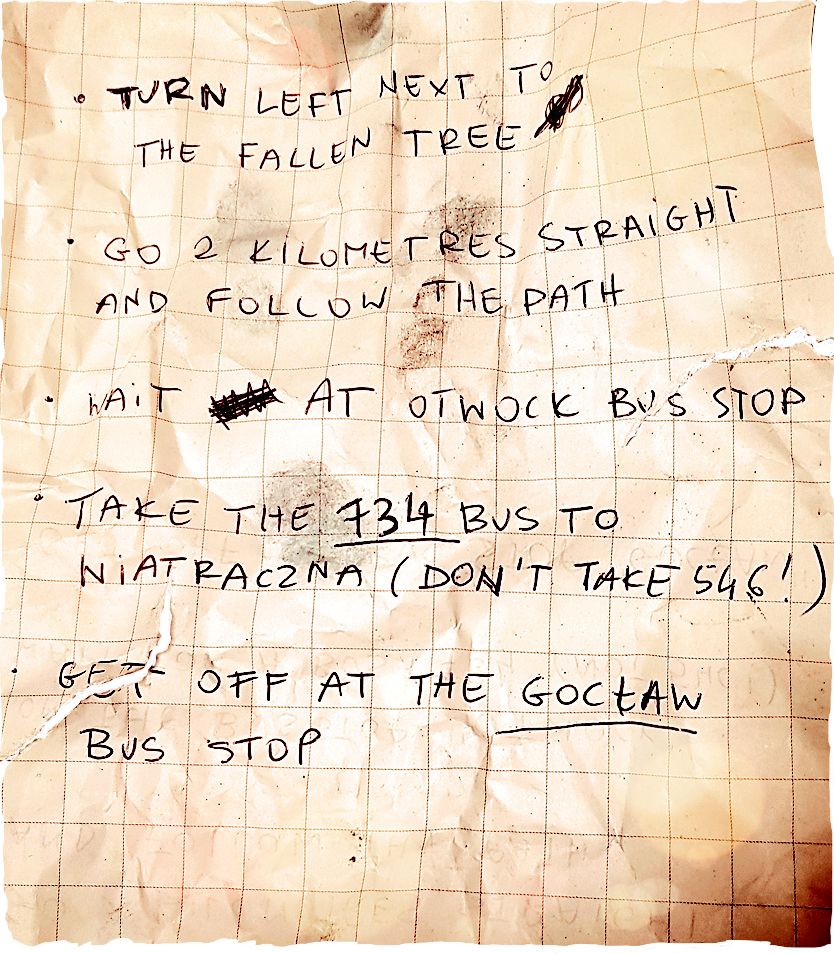 • TURN LEFT NEXT TO
THE FALLEN TREE
• GO 2 KILOMETRES STRAIGHT
AND FOLLOW THE PATH
• WAIT AT OTWOCK BUS STOP
• TAKE THE 734 BUS TO
NIATRACZNA (DON'T TAKE 546!)
• GET OFF AT THE GOCŁAW
BUS STOP